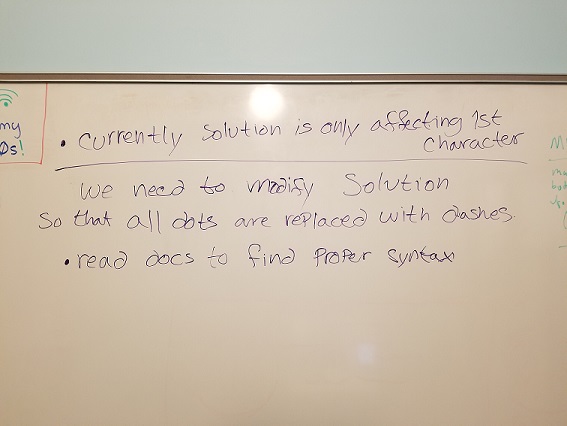 my
Os!
• Currently Solution is only affecting 1st
Character
We need to modify Solution
So that all dots are replaced with dashes.
• read docs to find Proper syntax